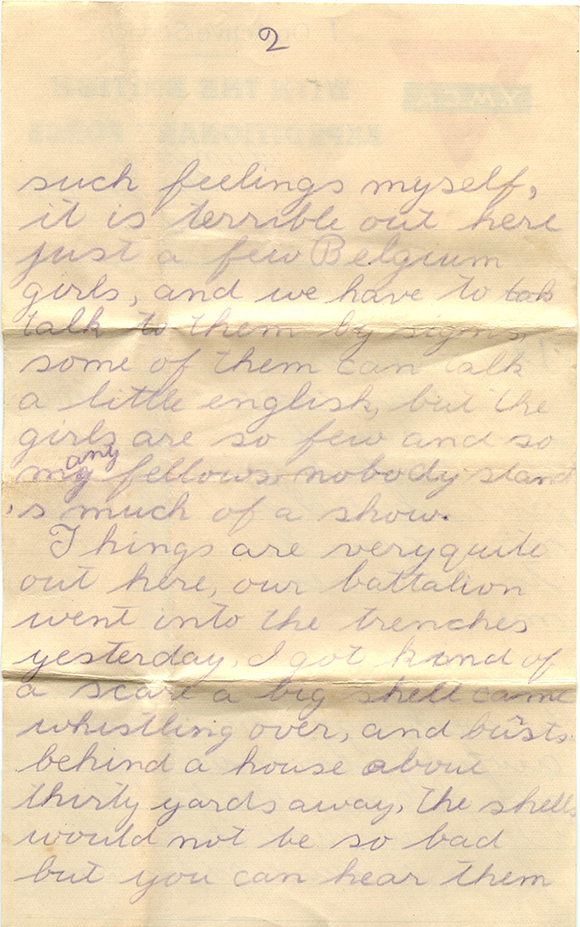 2
such feelings myself,
it is terrible out here
just a few Belgium
girls, and we have to tak
talk to them by signs,
some of them can talk
a little english, but the
girls are so few and so
many fellows nobody stand
's much of a show.
Things are very quite
out here, our battalion
went into the trenches
yesterday, I got kind of
a scare a big shell came
whistling over, and busts
behind a house about
thirty yards away, the shells
would not be so bad
but you can hear them